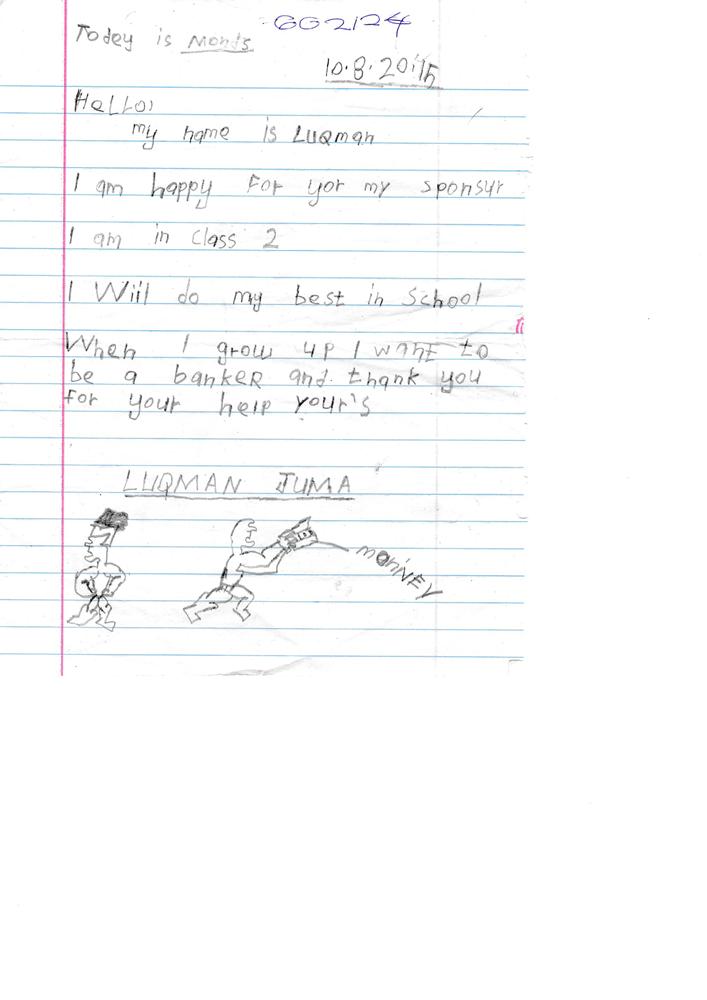 GG2124
Today is Monds
10.8.2015
HeLLO!
my name is LUQman
I am happy For yor my sponsur
I am in class 2
I Will do my best in School
When I grow up I want to
be a bankeR and. thank you
For your help Your's
LUQMAN JUMA
monNEY